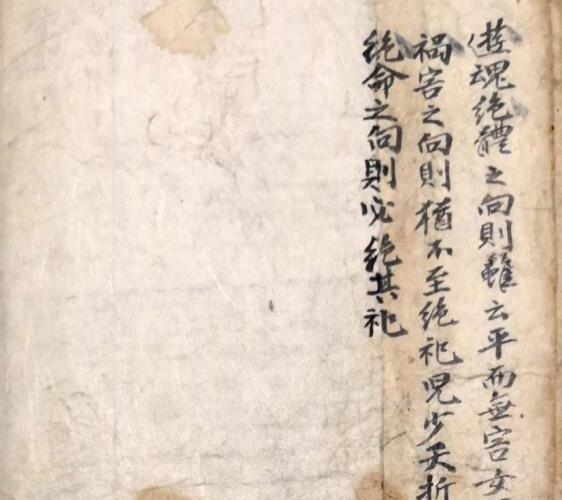 遊魂絶體之向則雖云平而無害女
禍害之向則猶不至絶祀児少夭折
絶命之向則必絶其祀